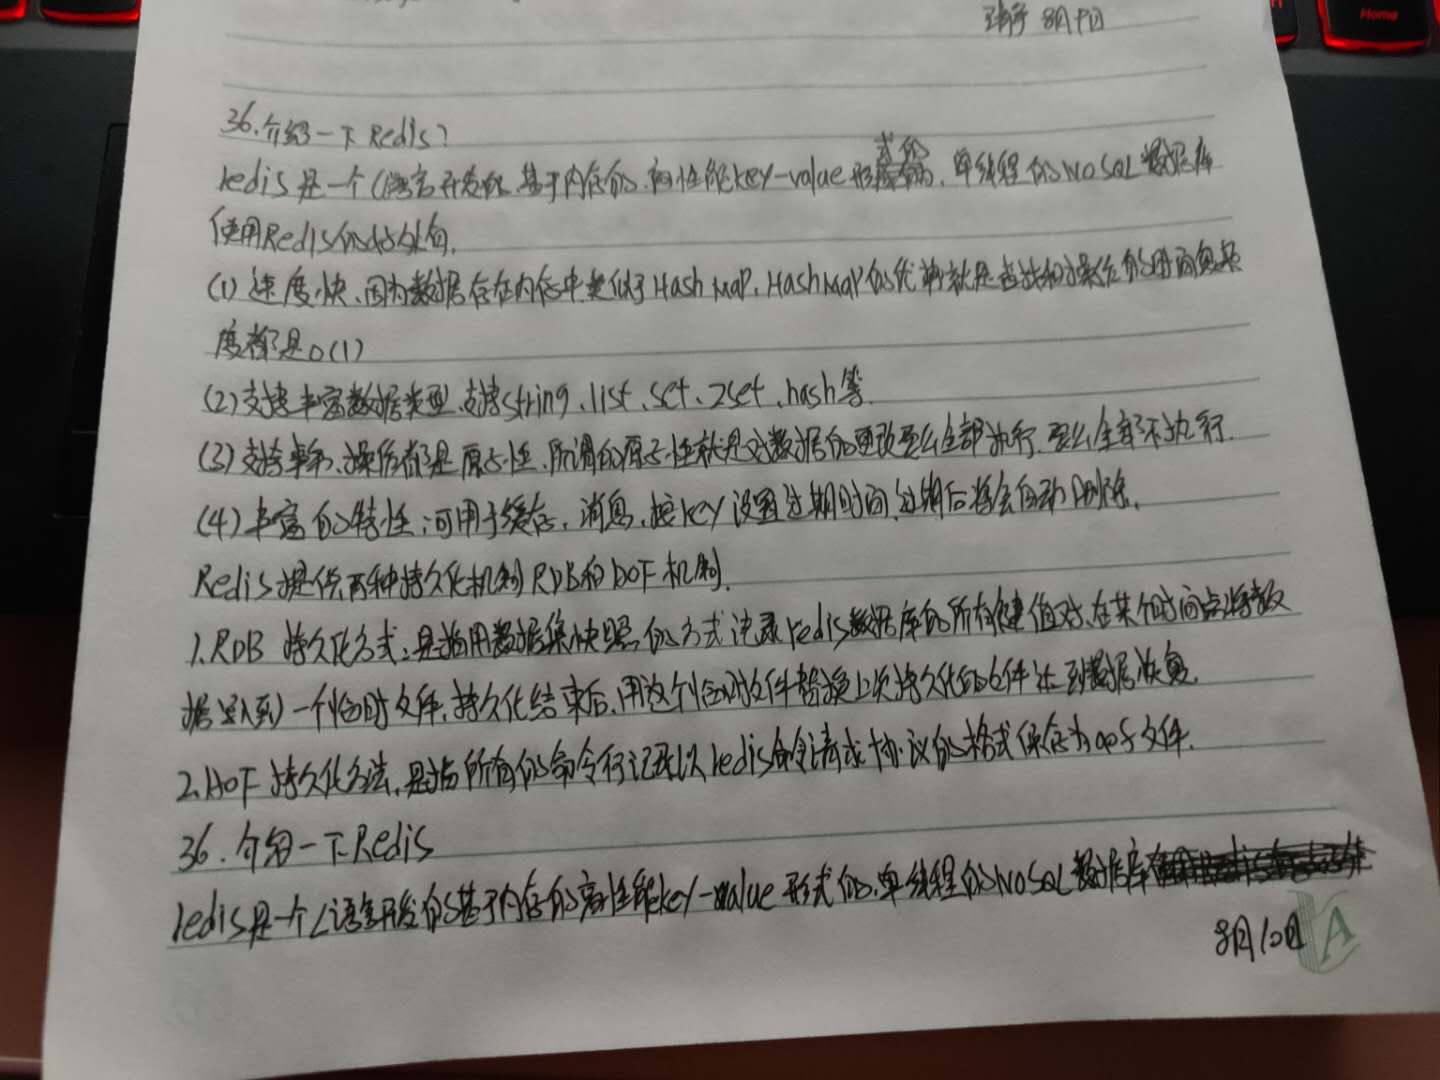 8月9日
36.介绍一下Redis?
redis是一个C语言开发的、基于内存的、高性能key-value形式的、单线程的NoSQL数据库
使用Redis的好处有.
(1)速度快、因为数据存在内存中,类似于HashMap,HashMap的优势就是查找和操作的时间复杂
度都是O(1)
(2)支持丰富数据类型,支持string、list、set、zset、hash等.
(3)支持事务、操作都是原子性、所谓的原子性就是对数据的更改要么全部执行,要么全部不执行.
(4)丰富的特性:可用于缓存,消息,按key设置过期时间,过期后将会自动删除.
Redis提供两种持久化机制RDB和AOF机制.
1.RDB 持久化方式:是指用数据集快照的方式记录redis数据库的所有键值对,在某个时间点将数
据写入到一个临时文件,持久化结束后,用这个临时文件替换上次持久化的文件达到数据恢复.
2.AOF持久化方法,是指所有的命令行记录以redis命令请求协议的格式保存为aof文件.
36.介绍一下Redis
redis是一个C语言开发的基于内存的高性能key-value形式的、单线程的NoSQL数据库
8月10日
A